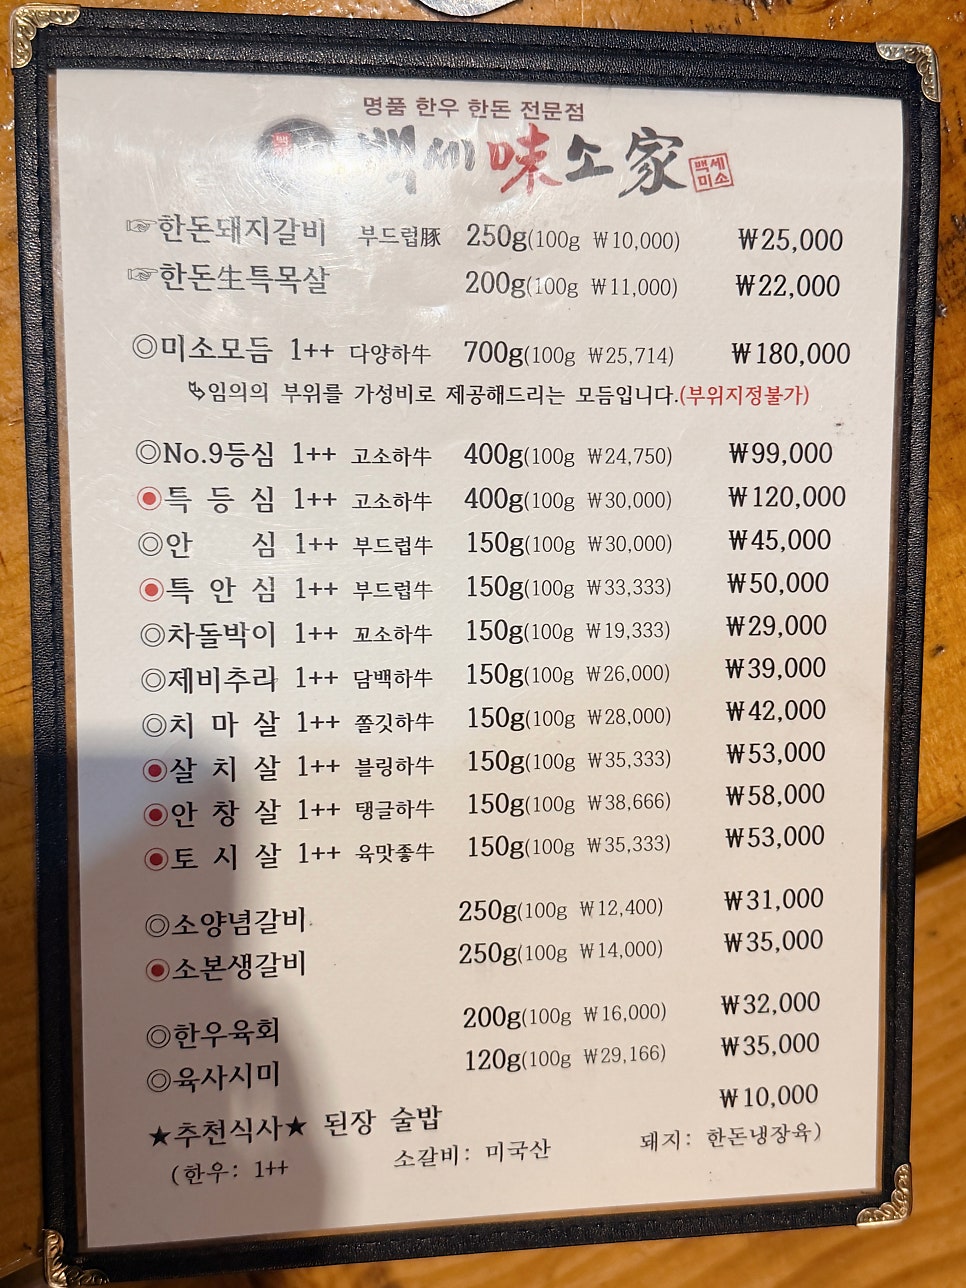 명품 한우 한돈 전문점
백세味소家 백세미소
☞한돈돼지갈비 부드럽豚 250g(100g ₩10,000) ₩25,000
☞한돈生특목살 200g(100g ₩11,000) ₩22,000
◎미소모듬 1++ 다양하牛 700g(100g ₩25,714) ₩180,000
임의의 부위를 가성비로 제공해드리는 모듬입니다.(부위지정불가)
◎No.9등심 1++ 고소하牛 400g(100g ₩24,750) ₩99,000
◉특 등 심 1++ 고소하牛 400g(100g ₩30,000) ₩120,000
◎안 심 1++ 부드럽牛 150g(100g ₩30,000) ₩45,000
◉특 안 심 1++ 부드럽牛 150g(100g ₩33,333) ₩50,000
◎차돌박이 1++ 꼬소하牛 150g(100g ₩19,333) ₩29,000
◎제비추리 1++ 담백하牛 150g(100g ₩26,000) ₩39,000
◎치 마 살 1++ 쫄깃하牛 150g(100g ₩28,000) ₩42,000
◉살 치 살 1++ 블링하牛 150g(100g ₩35,333) ₩53,000
◉안 창 살 1++ 탱글하牛 150g(100g ₩38,666) ₩58,000
◉토 시 살 1++ 육맛좋牛 150g(100g ₩35,333) ₩53,000
◎소양념갈비 250g(100g ₩12,400) ₩31,000
◉소본생갈비 250g(100g ₩14,000) ₩35,000
◎한우육회 200g(100g ₩16,000) ₩32,000
◎육사시미 120g(100g ₩29,166) ₩35,000
★추천식사★ 된장 술밥 ₩10,000
(한우: 1++ 소갈비: 미국산 돼지: 한돈냉장육)